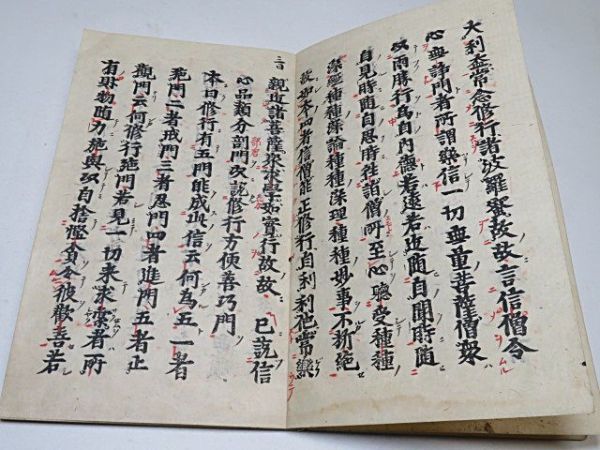 大利益常念修行諸波羅蜜故故言信僧令
心無諍門者所謂樂信一切無量菩薩僧衆
以兩勝行為自内若遠若近随自聞時随
自見時随自思時往詣僧所至心聽受種種
深經種種深論種種深理種種妙事不断絶
故如本四者信僧能正修行自利利他常樂
親近諸菩薩衆求學如實行故故 已説信
心品類分剖門次説修行方便善巧門
本曰修行有五門能成此信云何為五一者
施門二者戒門三者忍門四者進門五者止
觀門云何修行施門若見一切来求索者所
有財物随力施與以自捨慳貪令彼歡喜若